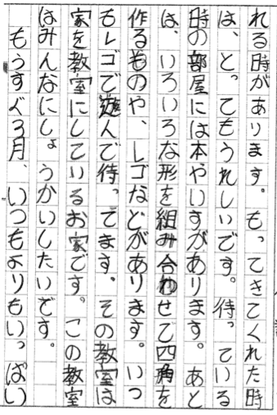 れる時があります。もってきてくれた時
は、とってもうれしいです。待っている
時の部屋には本やいすがあります。あと
は、いろいろな形を組み合わせて四角を
作るものや、レゴなどがあります。いつ
もレゴで遊んで待ってます。その教室は
家を教室にしているお家です。この教室
はみんなにしょうかいしたいです。
もうすぐ3月、いつもよりもいっぱい